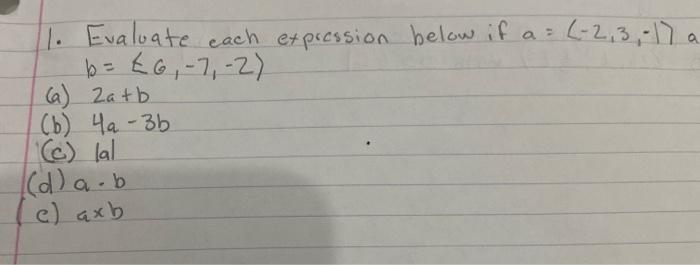 1. Evaluate each expression below if a = ⟨-2,3,-1⟩ a
b = ⟨6,-7,-2⟩
(a) 2a+b
(b) 4a-3b
(c) |a|
(d) a·b
(e) a×b